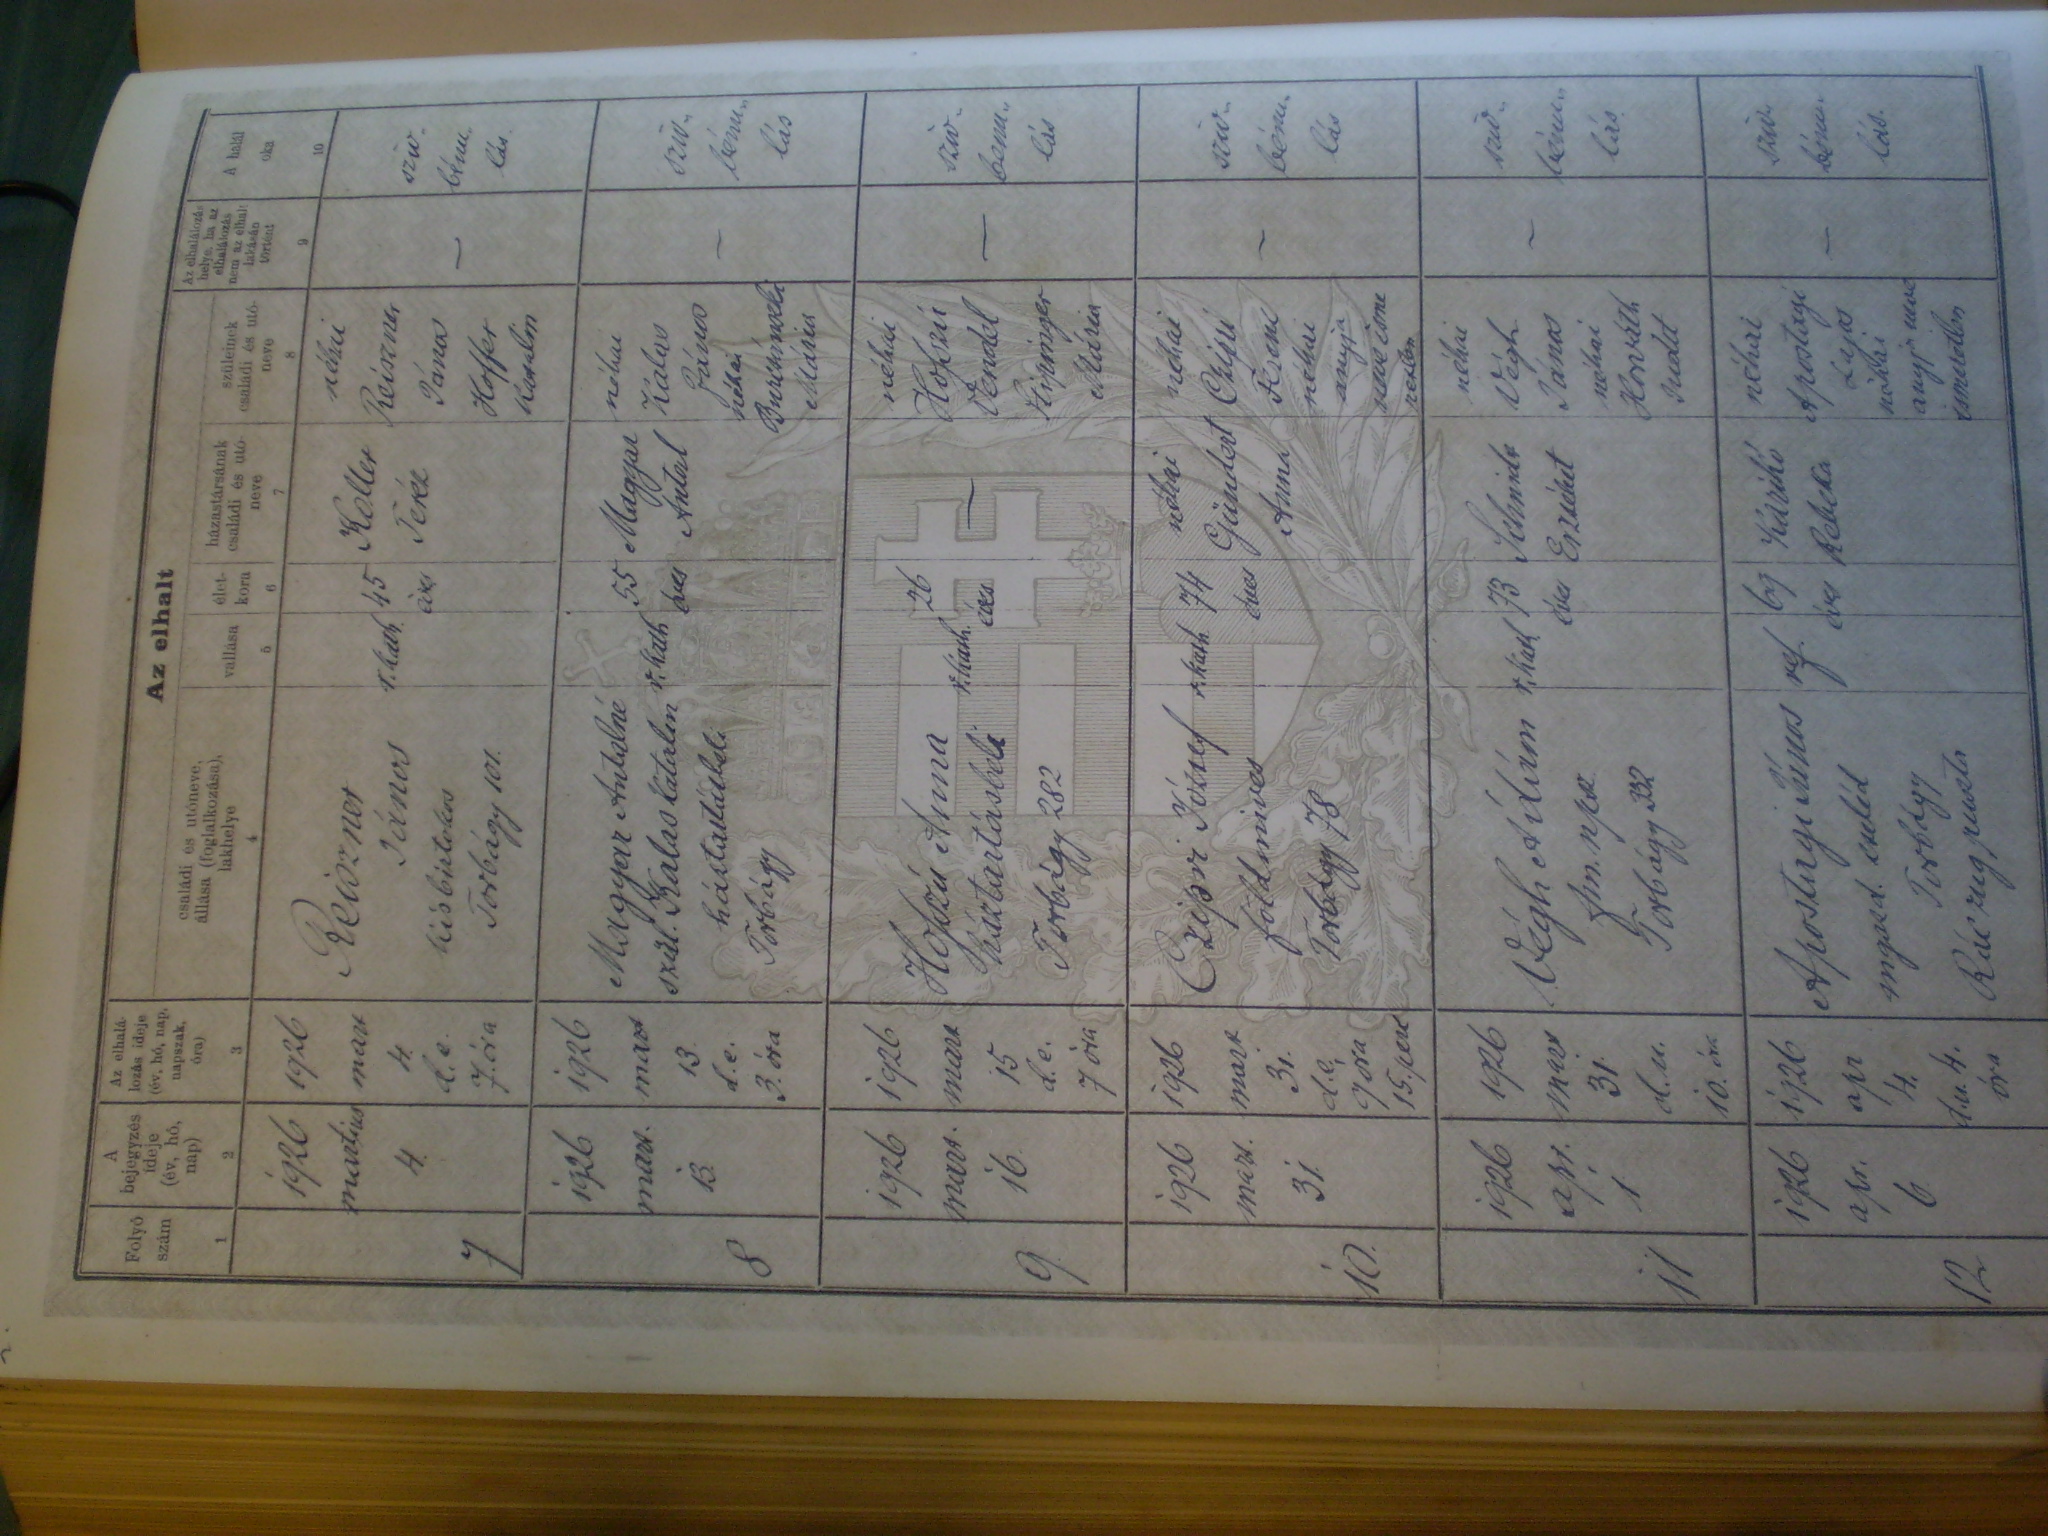 Az elhalt
Folyó
szám
A
bejegyzés
ideje
(év, hó,
nap)
Az elhalá-
lozás ideje
(év, hó, nap,
napszak,
óra)
családi és utóneve,
állása (foglalkozása),
lakhelye
vallása
élet-
kora
házastársának
családi és utó-
neve
szüleinek
családi és utó-
neve
Az elhalálozás
helye, ha az
elhalálozás
nem az elhalt
lakásán
történt
A halál
oka
1
2
3
4
5
6
7
8
9
10
7
1926
martius
4.
1926
mart
4.
d.e.
7. óra
Reiszner
János
kisbirtokos
Torbágy 101.
r. kath.
45
éves
Koller
Teréz
néhai
Reiszner
János
Hoffer
Katalin
—
szív-
bénu-
lás.
8
1926
mart.
13.
1926
mart
13.
d.e.
3. óra
Magyar Antalné
szül. Kalas Katalin
háztartásbeli
Torbágy
r. kath
55
éves
Magyar
Antal
néhai
Kalas
János
néhai
Mária
—
szív-
bénu-
lás
9.
1926
mart.
16.
1926
mart
15
d.e.
7 óra
Anna
háztartásbeli
Torbágy 282
r. kath.
26
éves
—
néhai
Vendel
Mária
—
szív-
bénu-
lás
10.
1926
mart.
31.
1926
mart
31.
d.e.
9 óra
15. perc
Czipri József
földmives
Torbágy 78
r. kath
74
éves
néhai
Anna
néhai
néhai
anyja
neve isme
retlen
—
szív-
bénu-
lás
11
1926
apr.
1
1926
mart
31.
d.u.
10. óra
Végh Ádám
Torbágy 332
r. kath
73
éves
Erzsébet
néhai
Végh
János
néhai
Horváth
—
szív-
bénu-
lás.
12
1926
apr.
6.
1926
apr
4.
du. 4.
óra
Apostagi János
Torbágy
puszta
ref.
69
éves
Rebeka
néhai
Apostagi
Lajos
néhai
anyja neve
ismeretlen
—
szív-
bénu-
lás.